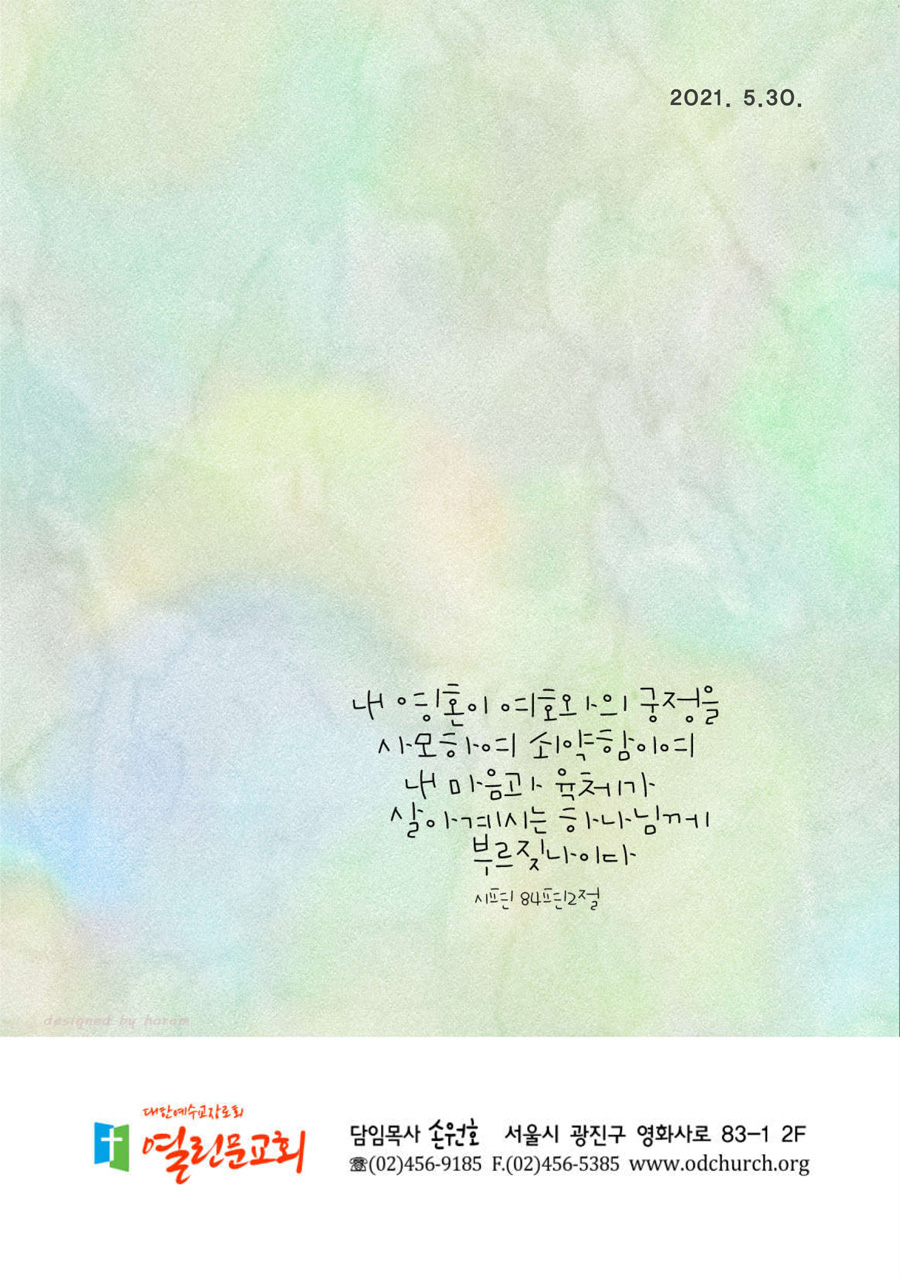 2021. 5.30.
내 영혼이 여호와의 궁정을
사모하여 쇠약함이여
내 마음과 육체가
살아계시는 하나님께
부르짖나이다
시편 84편2절
designed by horam
대한예수교장로회
열린문교회
담임목사 손원호 서울시 광진구 영화사로 83-1 2F
☎(02)456-9185 F.(02)456-5385 www.odchurch.org